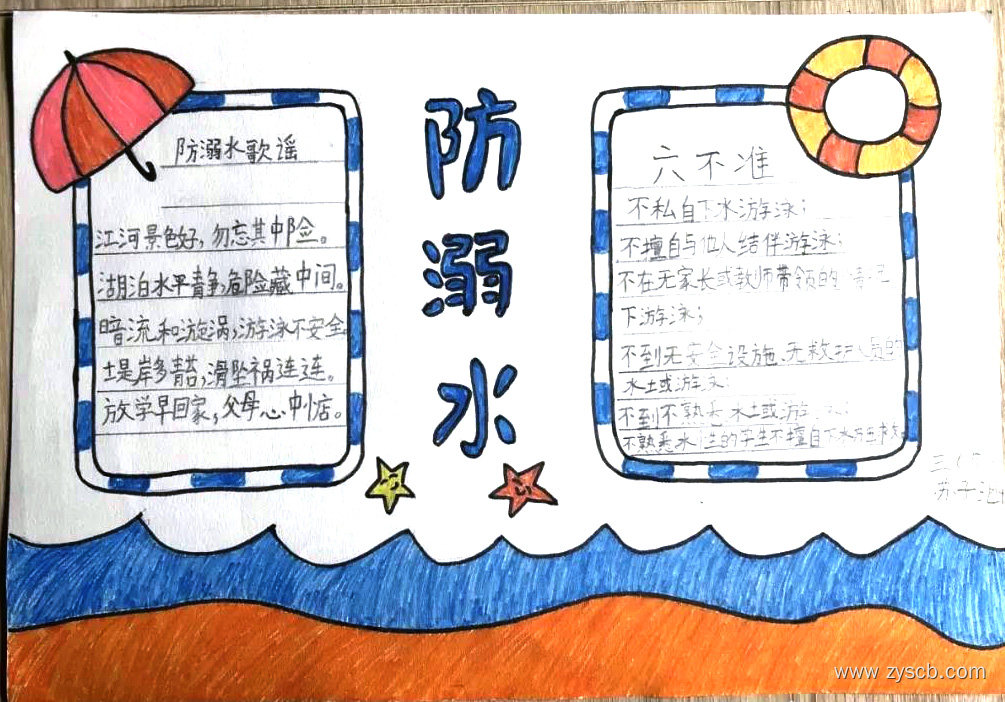 防溺水歌谣
江河景色好，勿忘其中险。
湖泊水平静，危险藏中间。
暗流和漩涡，游泳不安全。
堤岸多青苔，滑坠祸连连。
放学早回家，父母心中惦。
防溺水
六不准
不私自下水游泳；
不擅自与他人结伴游泳；
不在无家长或教师带领的情况
下游泳；
不到无安全设施、无救护人员的
水土或游泳；
不到不熟悉水土或游泳；
不熟悉水性的学生不擅自下水
苏子
www.zyscb.com